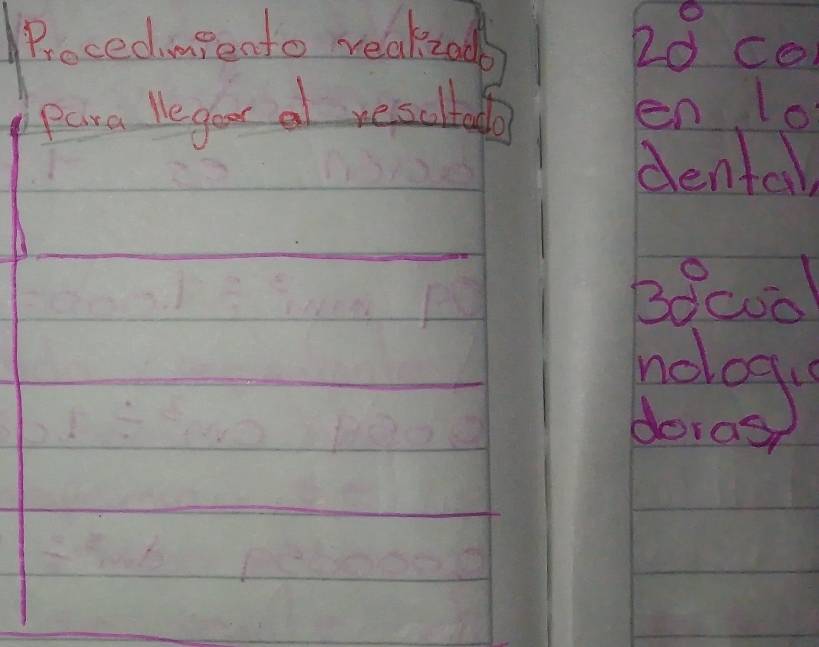 Procedimiento realizado
para llegar al resultado
2° co
en lo
dental,
3° cuá
nologi
doras